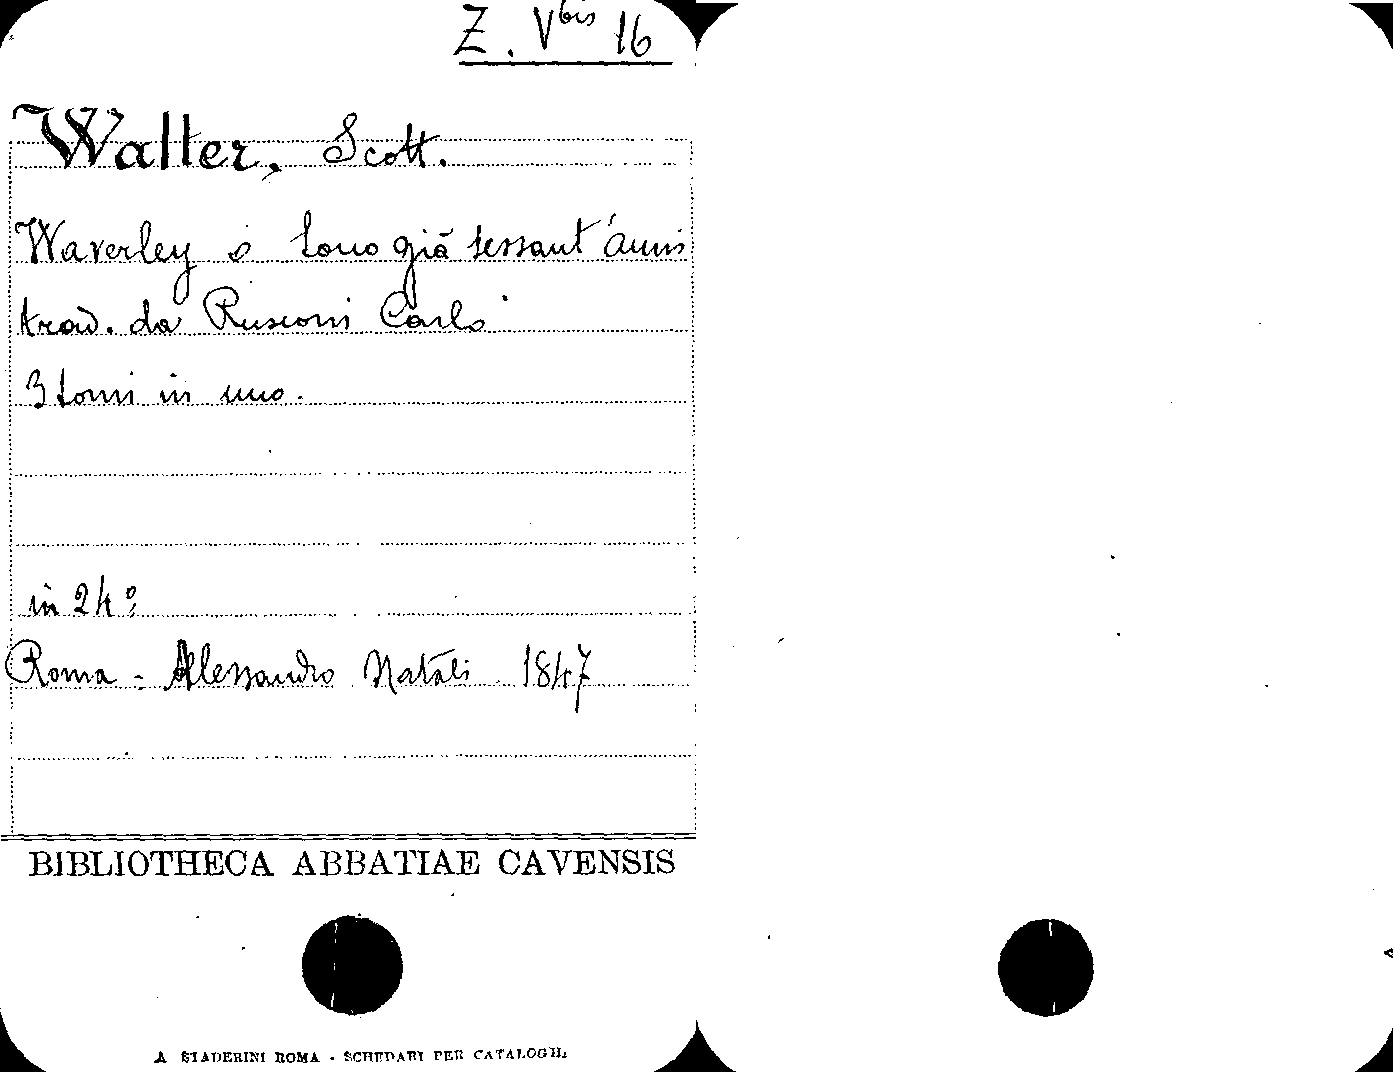 Z. V bis 16
Walter, Scott.
Waverley o sono già sessant'anni
trad. da Rusconi Carlo
3 tomi in uno.
in 24°;
Roma - Alessandro Natali 1847
BIBLIOTHECA ABBATIAE CAVENSIS
A STADERINI ROMA - SCHEDARI PER CATALOGHI